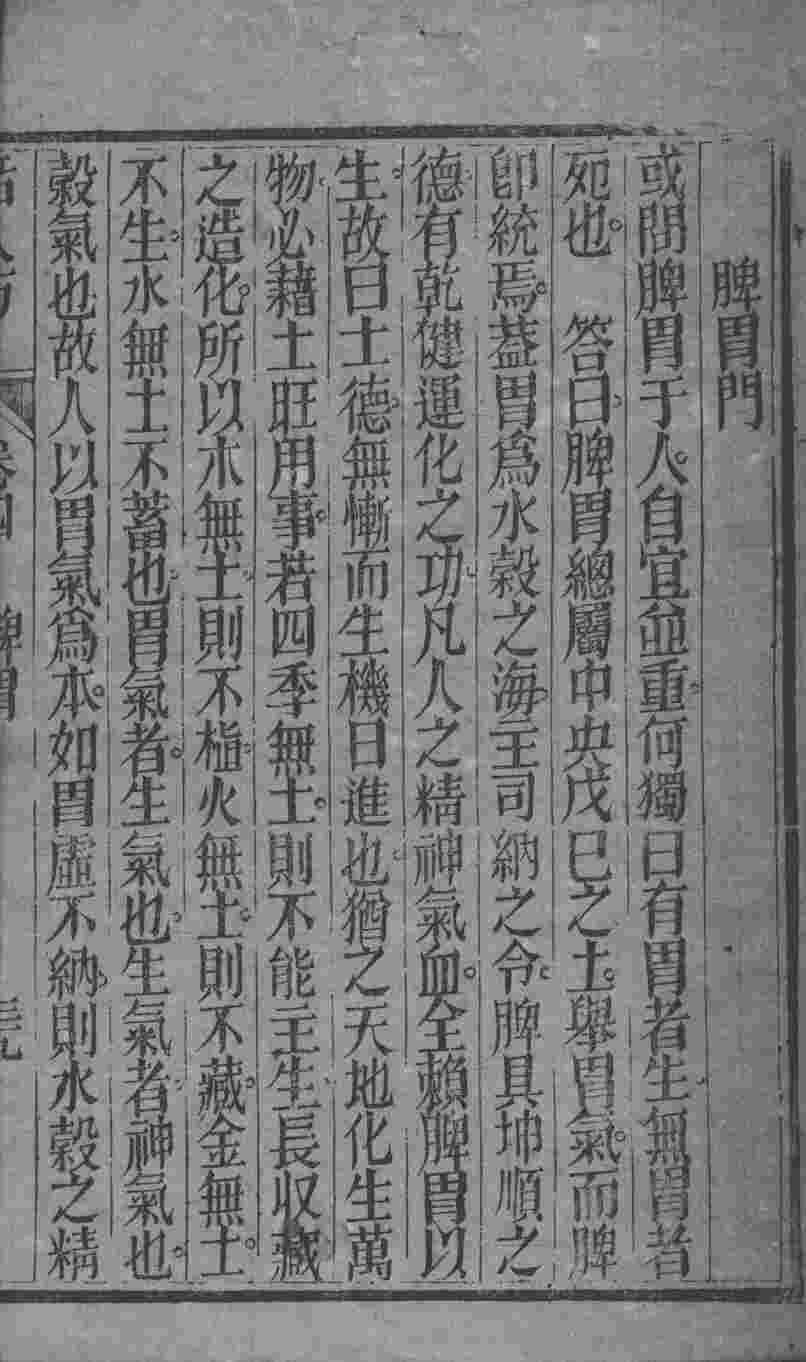 脾胃門
或問脾胃于人。自宜並重。何獨曰有胃者生。無胃者
死也。 答曰。脾胃總屬中央戊巳之土。舉胃氣。而脾
即統焉。蓋胃爲水穀之海。主司納之令。脾具坤順之
德。有乾健運化之功。凡人之精神氣血。全賴脾胃以
生。故曰土德。無慚而生機日進也。猶之天地化生萬
物。必藉土旺用事。若四季無土。則不能主生長収藏
之造化。所以木無土。則不植。火無土。則不藏。金無土。
不生。水無土不蓄也。胃氣者。生氣也。生氣者。神氣也。
穀氣也故人以胃氣爲本。如胃虛不納。則水穀之精
卷四
脾胃